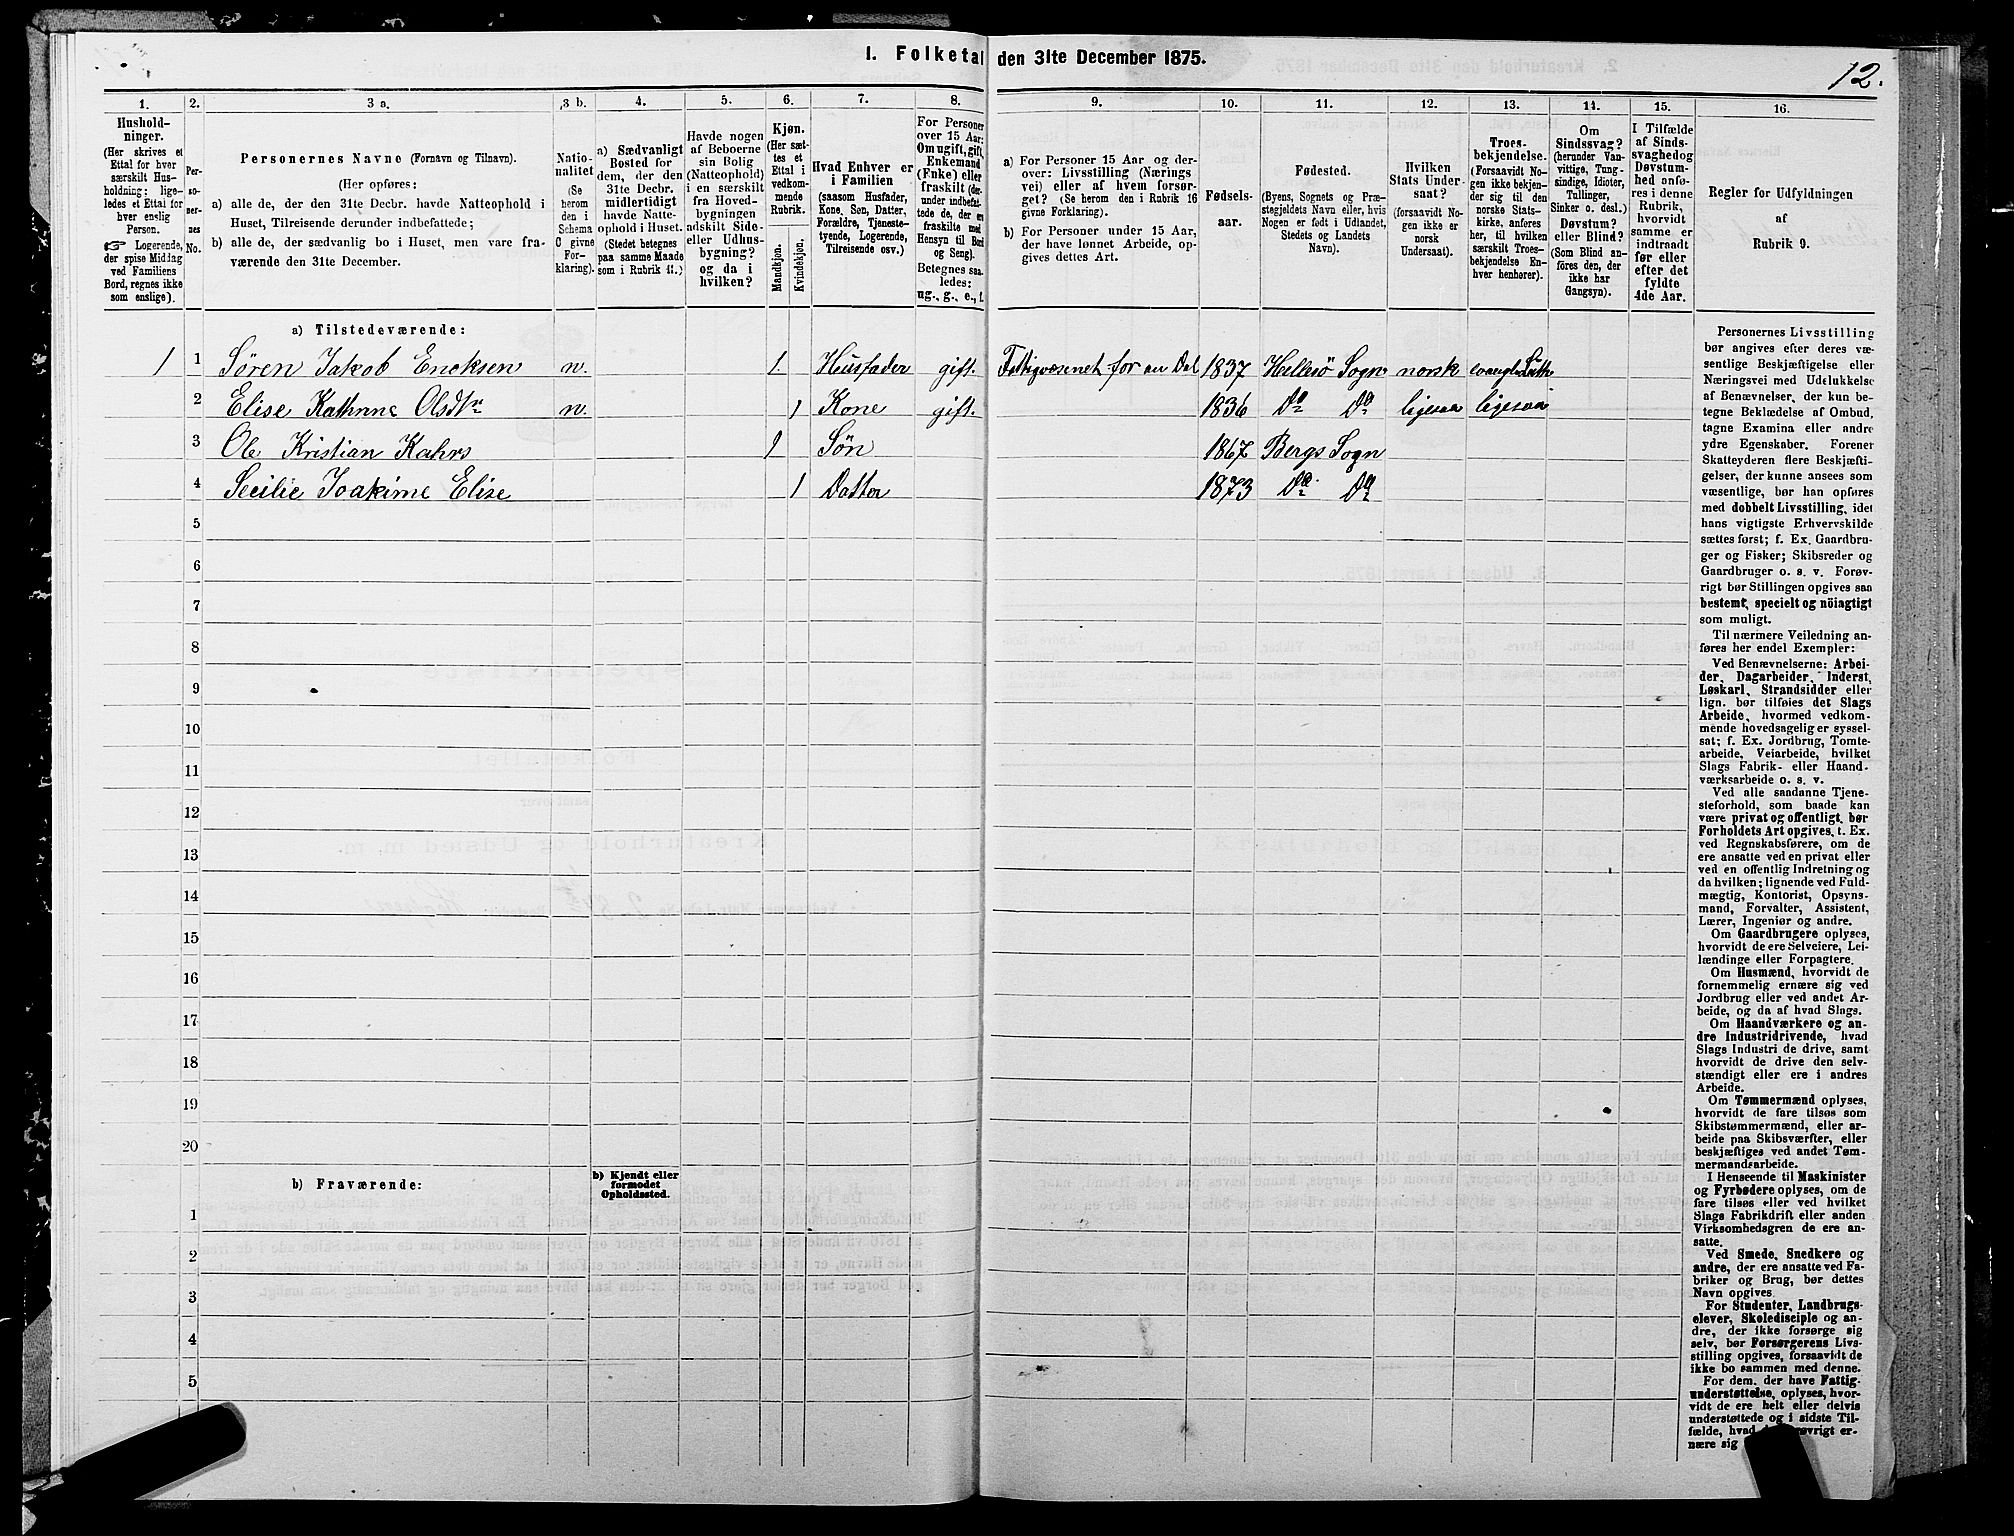 1. Folketal den 31te December 1875.
12.
1.
2.
3 a.
3 b.
4.
5.
6.
7.
8.
9.
10.
11.
12.
13.
14.
15.
16.
Hushold-
ninger.
(Her skrives et
Ettal for hver
særskilt Hus-
holdning; lige-
ledes et Ettal for
hver enslig
Person.
☞ Logerende,
der spise Middag
ved Familiens
Bord, regnes ikke
som enslige).
Per-
so-
ner-
nes
No.
Personernes Navne (Fornavn og Tilnavn).
(Her opføres:
a) alle de, der den 31te Decbr. havde Natteophold i
Huset, Tilreisende derunder indbefattede;
b) alle de, der sædvanlig bo i Huset, men vare fra-
værende den 31te December.
Natio-
nalitet
(Se
herom
den i
Schema
C givne
For-
klaring).
a) Sædvanligt
Bosted for
dem, der den
31te Decbr.
midlertidigt
havde Natte-
ophold i Huset.
(Stedet betegnes
paa samme Maade
som i Rubrik 11.)
Havde nogen
af Beboerne
sin Bolig
(Natteophold)
i en særskilt
fra Hoved-
bygningen
adskilt Side-
eller Udhus-
bygning?
og da i
hvilken?
Kjøn.
(Her sæt-
tes et
Ettal i
vedkom-
mende
Rubrik.
Mandkjøn.
Kvindekjøn.
Hvad Enhver er
i Familien
(saasom Husfader,
Kone, Søn, Datter,
Forældre, Tjeneste-
tyende, Logerende,
Tilreisende osv.)
For Personer
over 15 Aar:
Om ugift, gift,
Enkemand
(Enke) eller
fraskilt (der-
under indbefat-
tede de, der ere
fraskilte med
Hensyn til Bord
og Seng).
Betegnes saa-
ledes:
ug., g., e., f.
a) For Personer 15 Aar og der-
over: Livsstilling (Nærings
vei) eller af hvem forsør-
get? (Se herom den i Rubrik 16
givne Forklaring).
b) For Personer under 15 Aar,
der have lønnet Arbeide, op-
gives dettes Art.
Fødsels-
aar.
Fødested.
(Byens, Sognets og Præ-
stegjeldets Navn eller, hvis
Nogen er født i Udlandet,
Stedets og Landets
Navn).
Hvilken
Stats Under-
saat?
(forsaavidt No-
gen ikke er
norsk
Undersaat).
Troes-
bekjendelse.
(Forsaavidt No-
gen ikke bekjen-
der sig til den
norske Stats-
kirke, anføres
her, til hvilken
særskilt Troes-
bekjendelse En-
hver henhører).
Om
Sindssvag?
(herunder Van-
vittige, Tung-
sindige, Idioter,
Tullinger,
Sinker o. desl.)
Døvstum?
eller Blind?
(Som Blind an-
føres den, der
ikke har
Gangsyn).
I Tilfælde
af Sinds-
svaghed og
Døvstum-
hed anfø-
res i denne
Rubrik,
hvorvidt
samme er
indtraadt
før eller
efter det
fyldte
4de Aar.
Regler for Udfyldningen
af
Rubrik 9.
a) Tilstedeværende:
1 1 Søren Jakob Ericksen n. 1. Husfader gift. Fattigvæsenet for en Del 1837 Hellesö Sogn norsk evangl. Luth
2 Elise Kathrine Olsdtr n. 1 Kone gift. 1836 Do Do ligesaa ligesaa
3 Ole Kristian Kahrs 1 Søn 1867 Bergs Sogn
4 Secilie Joakime Elise 1 Datter 1873 Do Do
5
6
7
8
9
10
11
12
13
14
15
16
17
18
19
20
b) Fraværende:
b) Kjendt eller
formodet
Opholdssted.
1
2
3
4
5
Personernes Livsstilling
bør angives efter deres væ-
sentlige Beskjæftigelse eller
Næringsvei med Udelukkelse
af Benævnelser, der kun be-
tegne Beklædelse af Ombud,
tagne Examina eller andre
ydre Egenskaber. Forener
Skatteyderen flere Beskjæfti-
gelser, der kunne ansees som
væsentlige, bør han opføres
med dobbelt Livsstilling, idet
hans vigtigste Erhvervskilde
sættes først; f. Ex. Gaardbru-
ger og Fisker; Skibsreder og
Gaardbruger o. s. v. Forøv-
rigt bør Stillingen opgives saa
bestemt, specielt og nöiagtigt
som muligt.
Til nærmere Veiledning an-
føres her endel Exempler:
Ved Benævnelserne: Arbei-
der, Dagarbeider, Inderst,
Løskarl, Strandsidder eller
lign. bør tilføies det Slags
Arbeide, hvormed vedkom-
mende hovedsagelig er syssel-
sat; f. Ex. Jordbrug, Tomte-
arbeide, Veiarbeide, hvilket
Slags Fabrik- eller Haand-
værksarbeide o. s. v.
Ved alle saadanne Tjene-
steforhold, som baade kan
være privat og offentligt, bør
Forholdets Art opgives, t. Ex.
ved Regnskabsførere, om de
ere ansatte ved en privat eller
ved en offentlig Indretning og
da hvilken; lignende ved Fuld-
mægtig, Kontorist, Opsyns-
mand, Forvalter, Assistent,
Lærer, Ingeniør og andre.
Om Gaardbrugere oplyses,
hvorvidt de ere Selveiere, Lei-
lændinge eller Forpagtere.
Om Husmænd, hvorvidt de
fornemmelig ernære sig ved
Jordbrug eller ved andet Ar-
beide, og da af hvad Slags.
Om Haandværkere og an-
dre Industridrivende, hvad
Slags Industri de drive, samt
hvorvidt de drive den selv-
stændigt eller ere i andres
Arbeide.
Om Tømmermænd oplyses,
hvorvidt de fare tilsøs som
Skibstømmermænd, eller ar-
beide paa Skibsværfter, eller
beskjæftiges ved andet Tøm-
mermandsarbeide.
I Henseende til Maskinister
og Fyrbødere oplyses, om de
fare tilsøs eller ved hvilket
Slags Fabrikdrift eller anden
Virksomhedsgren de ere an-
satte.
Ved Smede, Snedkere og
andre, der ere ansatte ved Fa-
briker og Brug, bør dettes
Navn opgives.
For Studenter, Landbrugs-
elever, Skoledisciple og an-
dre, der ikke forsørge sig
selv, bør Forsørgerens Livs-
stilling opgives, forsaavidt de
ikke bo sammen med denne.
For dem, der have Fattig-
understøttelse, oplyses, hvor-
vidt de ere helt eller delvis
understøttede og i sidste Til-
fælde, hvad øvrigt er-
nære sig